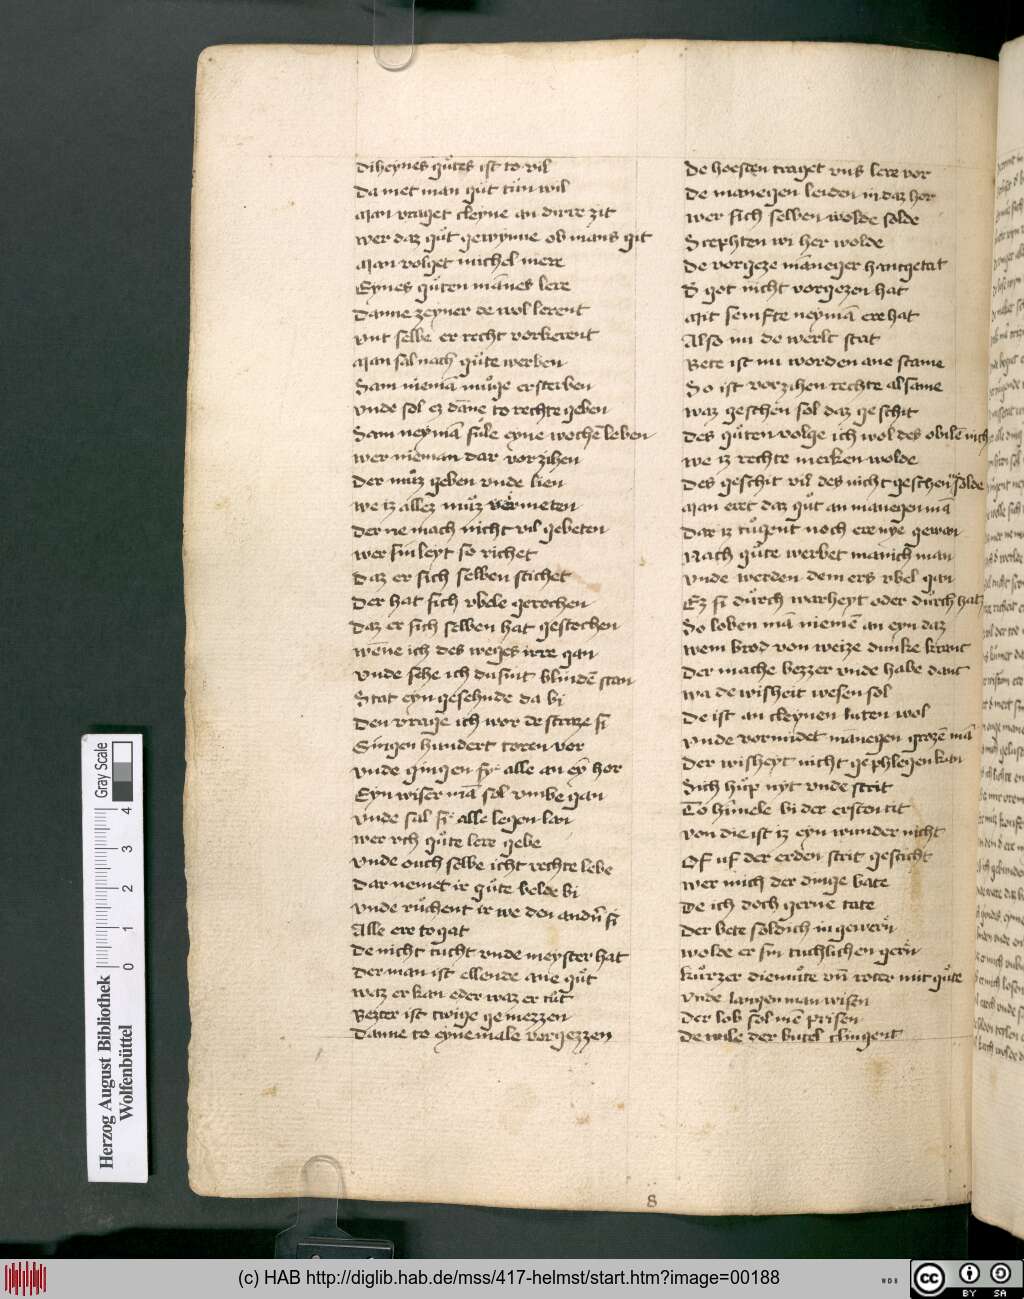 Diheynes gůtes ist to vil
Da met man gůt tůn wil
Man vraget cleyne an dirre zit
wer daz gůt gewynne ob mans git
Man volget michel mere
Eynes gůten mānes lere
Danne zeyner de wol lerent
vnt selbe er recht vorkerent
Man sal nach gůte werben
Sam niemā můge ersterben
vnde sol ez dāne to rechte geben
Sam neymā sule eyne wochē leben
wer nieman dar vorzihen
Der můz geben vnde lien
we iz allez můz vermeten
Der ne mach nicht vil gebeten
wer sin leyt so richet
Daz er sich selben stichet
Der hat sich vbele gerochen
Daz er sich selben hat gestochen
wēne ich des weges irre gan
vnde sehe ich dusunt blindē stan
Stat eyn gesehnde da bi
Den vrage ich wor de straze si
Gingen hundert toren vor
vnde gingen sy alle an ey hor
Eyn wiser mā sol vmbe gan
vnde sal sy alle legen lan
wer vch gůte lere gebe
vnde ouch selbe icht rechte lebe
Dar nemet ir gůte belde bi
vnde růchent ir we den andn̄ si
Alle ere togat
De nicht tucht vnde meyster hat
Der man ist ellende ane gůt
waz er kan eder waz er tůt
Bezter ist twige gemezzen
Danne to eynemale vorgezzen
De hoesten traget vns lere vor
De manegen leiden in daz hor
wer sich selben wolde solde
Strephten wi her wolde
De vorgeze māneger hantgetat
D got nicht vorgezen hat
Mit semfte neymā ere hat
Also nu de werlt stat
Bete ist nu worden ane scame
So ist vorzihen rechte alsame
waz geschen sol daz geschit
Des gůten volge ich wol des obilē nich
we iz rechte merken wolde
Des geschit vil des nicht geschen solde
Man eret daz gůt an manegen mā
Dar iz tůgent noch ere nye gewan
Nach gůte werbet manich man
vnde werden dem ers vbel gan
Ez si důrch warheyt oder důrch haz
So loben mā niemē an eyn daz
wem brod von weize dunke kranc
Der mache bezzer vnde habe danc
wa de wisheit wesen sol
De ist an cleynen luten wol
vnde vormidet manegen grozē mā
Der wisheyt nicht gephlegen kan
Sich hůp nyt vnde strit
To himele bi der ersten tit
von die ist iz eyn wunder nicht
Of uf der erden strit geschicht
wer mich der dinge bate
De ich doch gerne tate
Der bete soldich in gewern̄
wolde er sin tuchlichen gern̄
kůrzer diemůte vn̄ roter mit gůte
vnde langen man wisen
Der lob sol mē prisen
De wile der butel clingent
8
Herzog August Bibliothek
Wolfenbüttel
Gray Scale
0 1 2 3 4
(c) HAB http://diglib.hab.de/mss/417-helmst/start.htm?image=00188
WDB
cc
BY SA